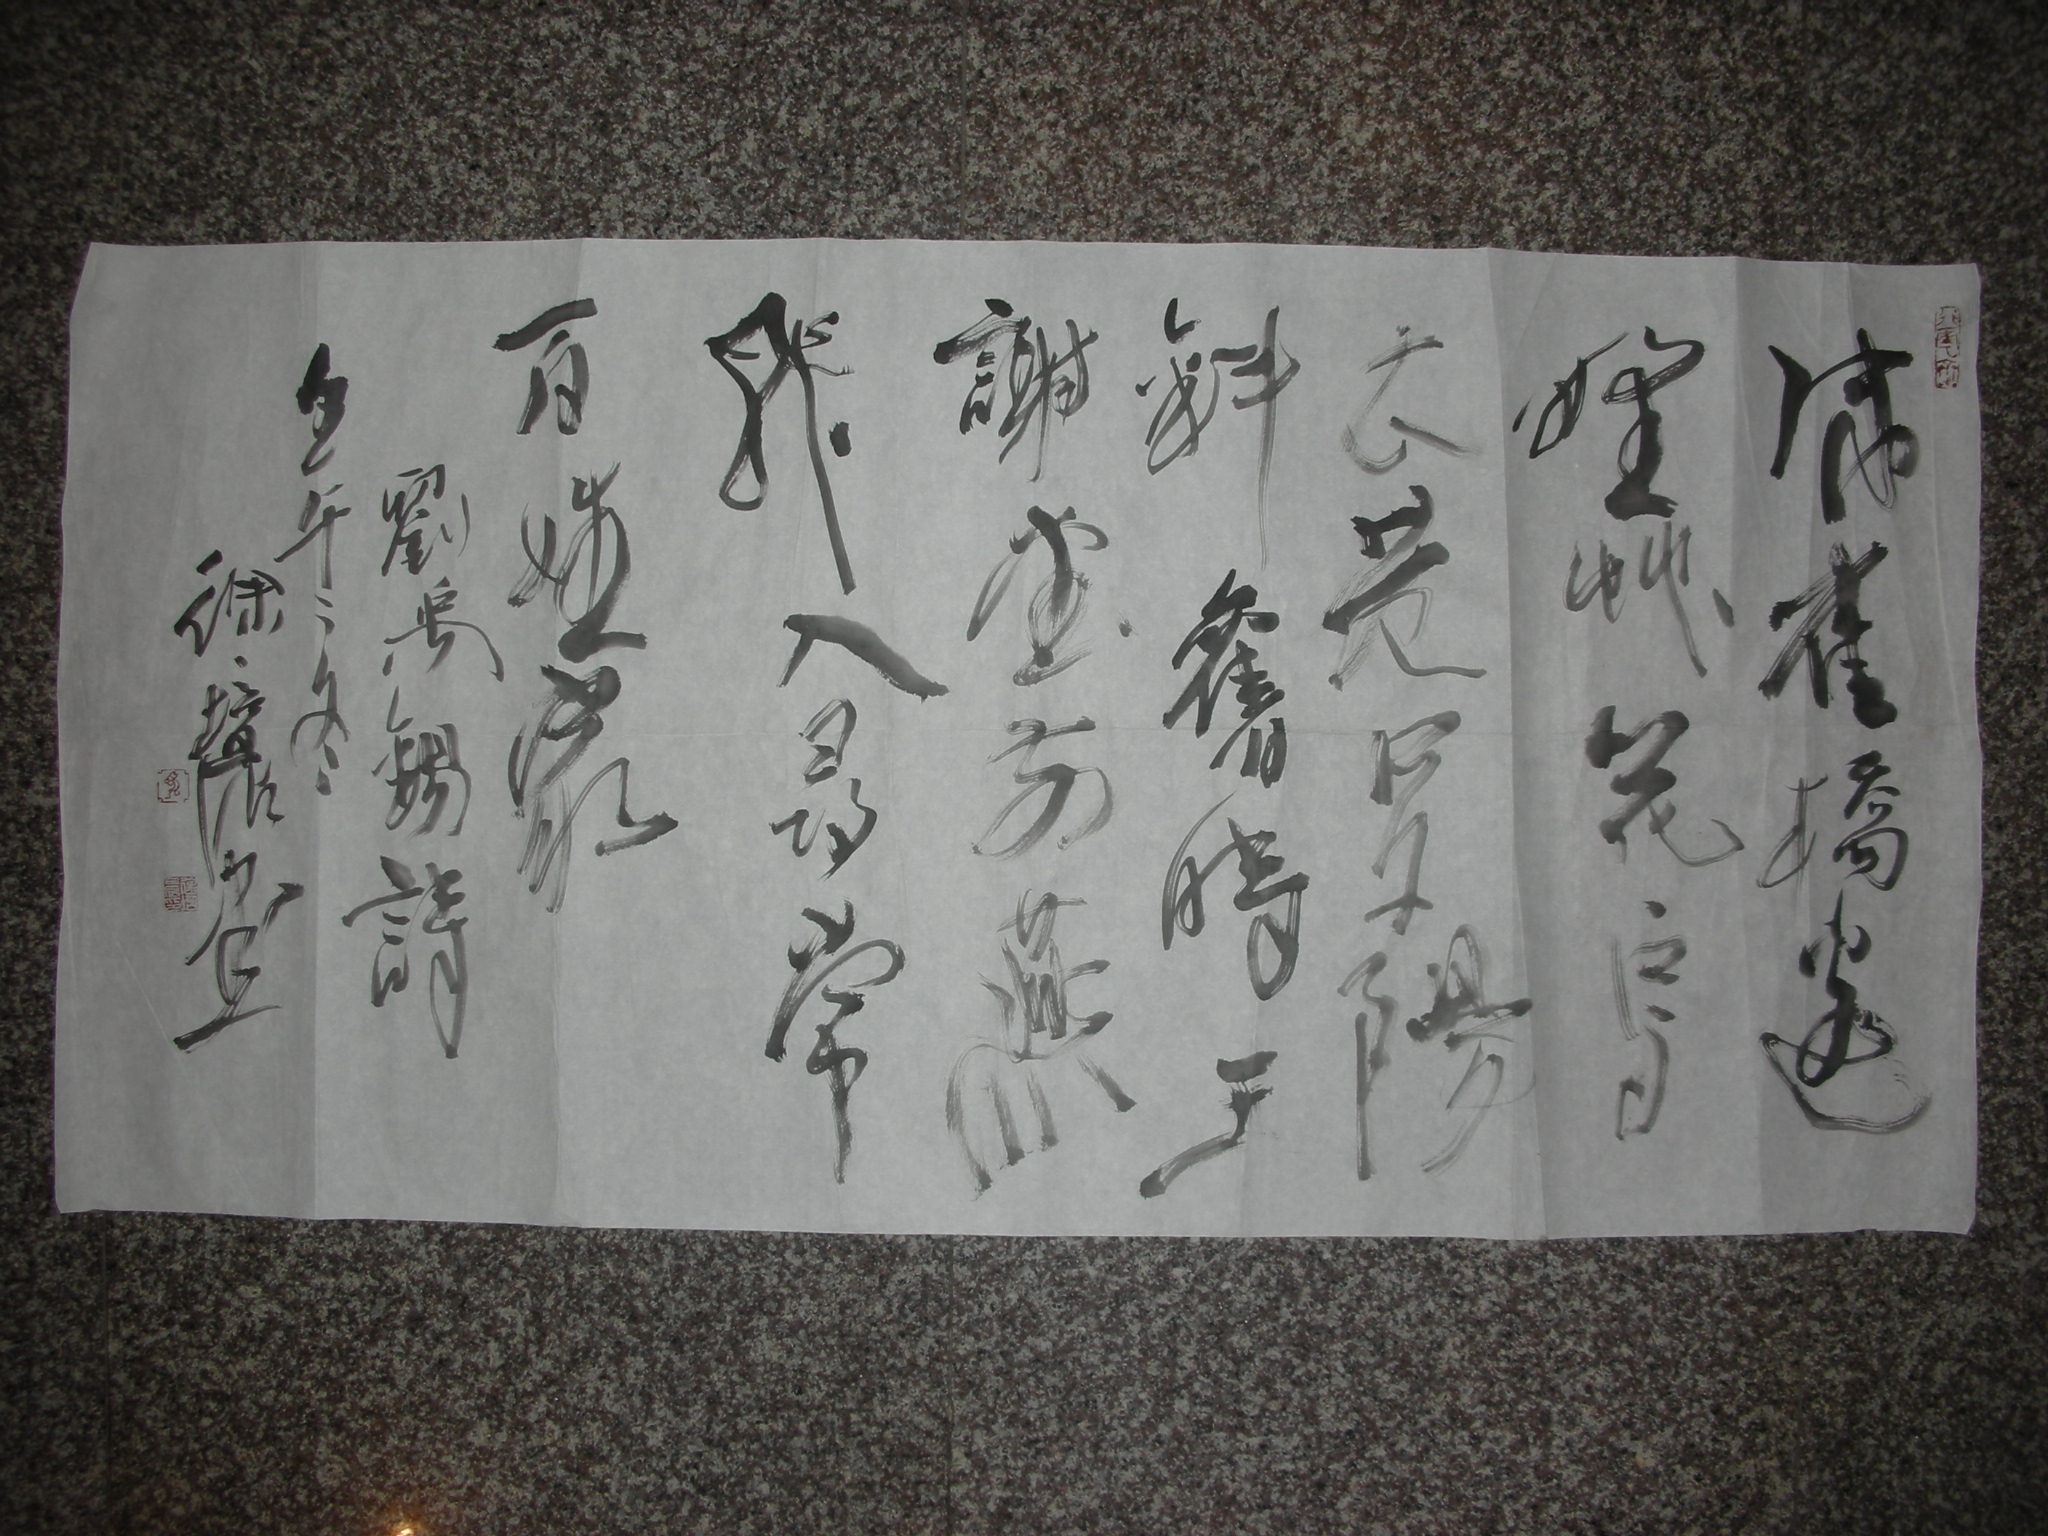 朱雀橋邊
野艸花烏
衣巷口夕陽
斜舊時王
謝堂前燕
飛入尋常
百姓家
劉禹錫詩
午之冬
徐書